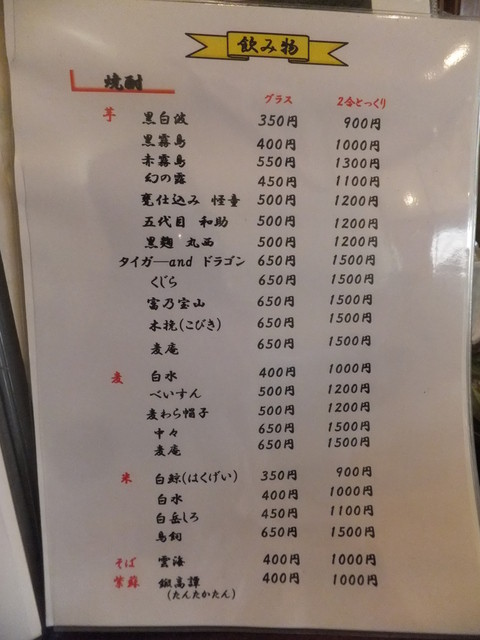 飲み物
焼酎
グラス 2合とっくり
芋 黒白波 350円 900円
黒霧島 400円 1000円
赤霧島 550円 1300円
幻の露 450円 1100円
甕仕込み 怪童 500円 1200円
五代目 和助 500円 1200円
黒麹 丸西 500円 1200円
タイガーand ドラゴン 650円 1500円
くじら 650円 1500円
富乃宝山 650円 1500円
木挽(こびき) 650円 1500円
麦庵 650円 1500円
麦 白水 400円 1000円
べいすん 500円 1200円
麦わら帽子 500円 1200円
中々 650円 1500円
麦庵 650円 1500円
米 白鯨(はくげい) 350円 900円
白水 400円 1000円
白岳しろ 450円 1100円
鳥飼 650円 1500円
そば 雲海 400円 1000円
紫蘇 鍛高譚 400円 1000円
(たんたかたん)